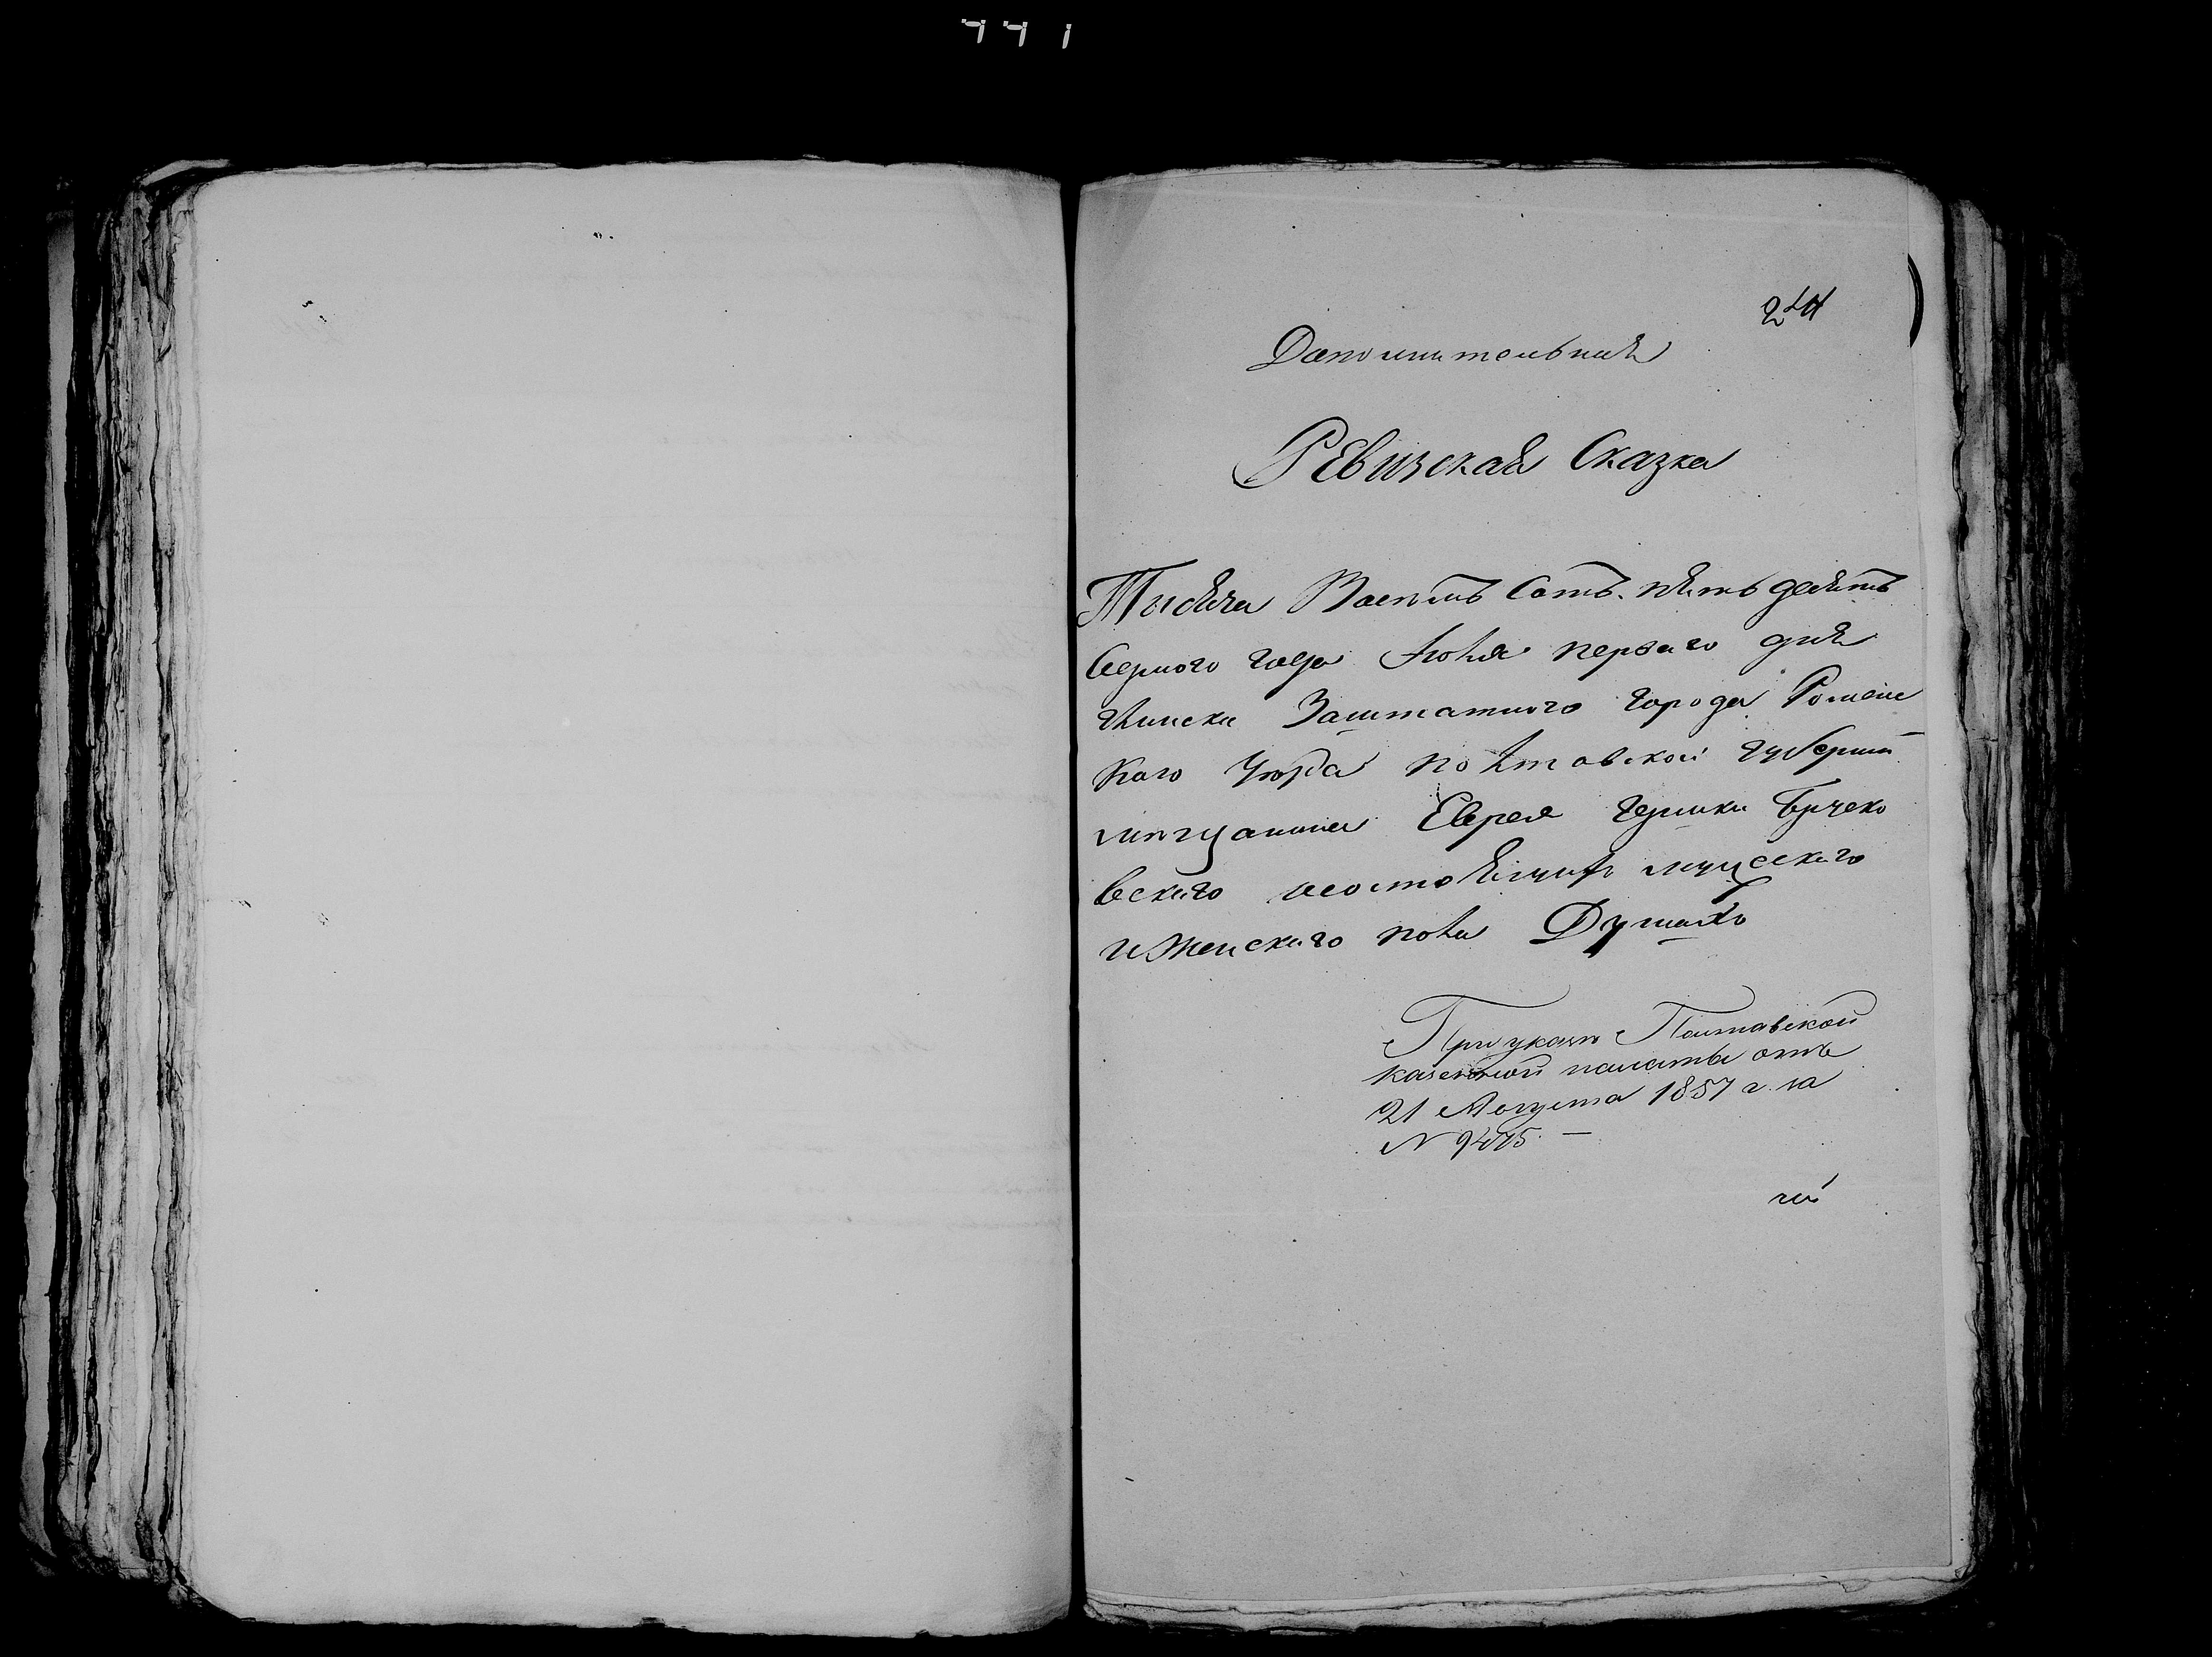 Дополнительная
Ревизская Сказка
Тысяча Восемь Сотъ. пять десять
Седмого года Июля первого дня
Глинска Заштатного города Роменс
кого Уезда полтовской губернии
мещанина Еврея
вского мужеского
и женского пола Душахъ
При указе Полтавской
казенной палаты отъ
21 Августа 1857 г. за
N